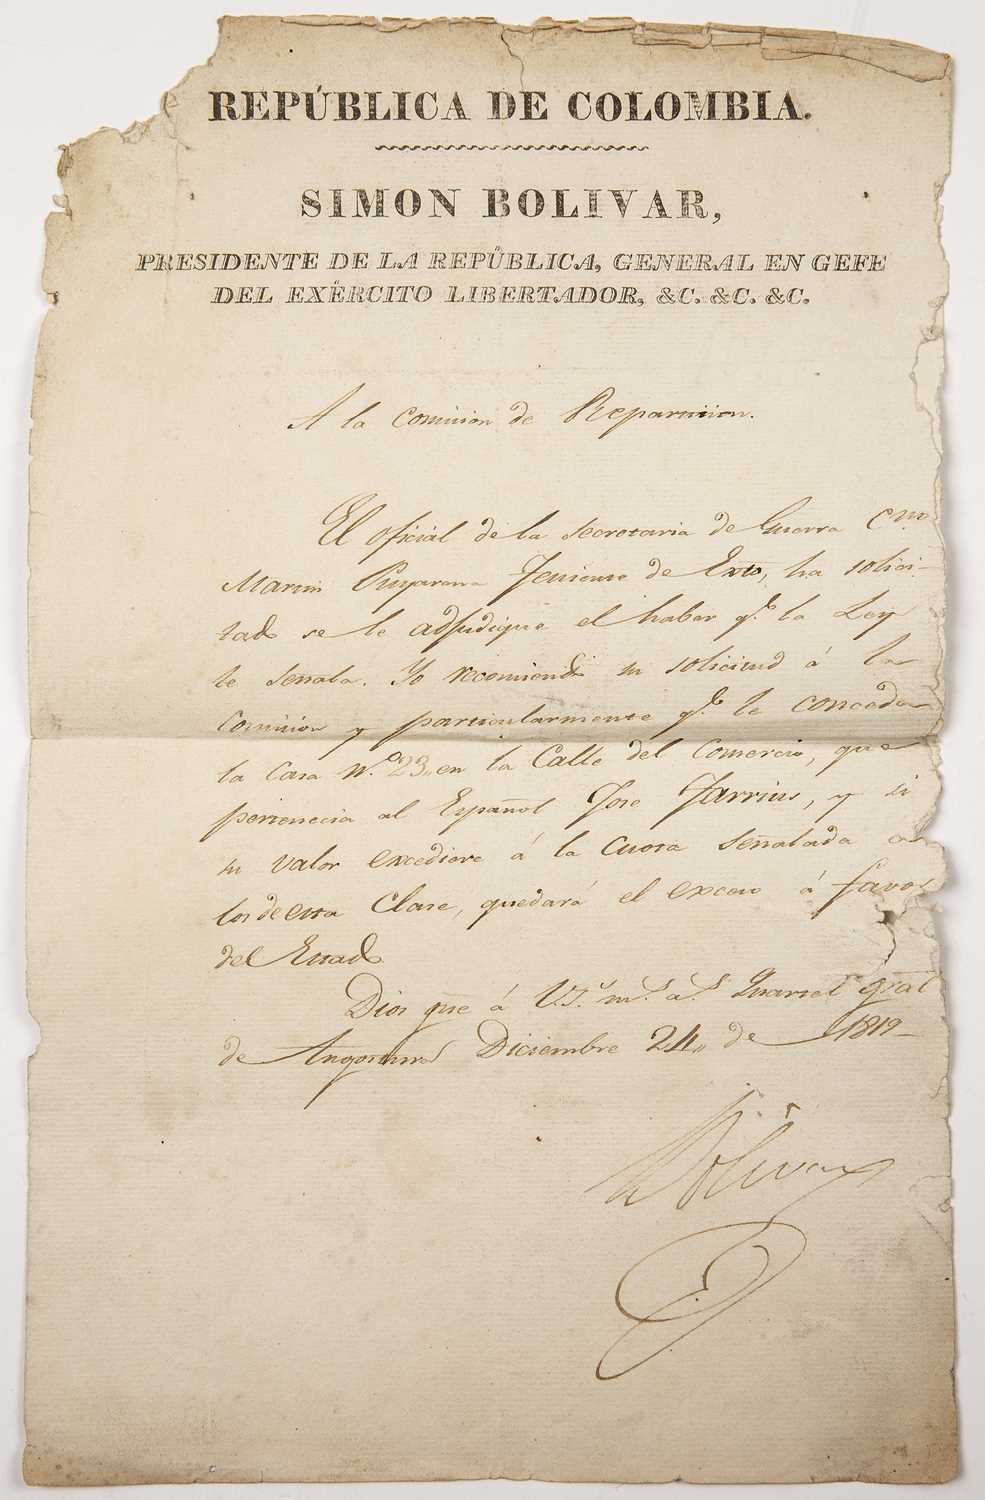 REPÚBLICA DE COLOMBIA.
SIMON BOLIVAR,
PRESIDENTE DE LA REPÚBLICA, GENERAL EN GEFE
DEL EXÉRCITO LIBERTADOR, &C. &C. &C.
A la Comision de Reparticion.
El oficial de la secretaria de Guerra
Martin Teniente de Exto, ha solici-
tado se le adjudique el haber q.e la Ley
le señala. Yo recomiendo su solicitud á la
Comision y particularmente q.e le conceda
la Casa N.o 23,, en la Calle del Comercio, que
pertenecia al Español Jose y si
su valor excediere á la Cuota señalada a
los de esta Clase, quedará el exceso á favor
del Estado
Dios que á V.S. m.s a.s Quartel gral
de Angostura Diciembre 24,, de 1819-
Bolivar